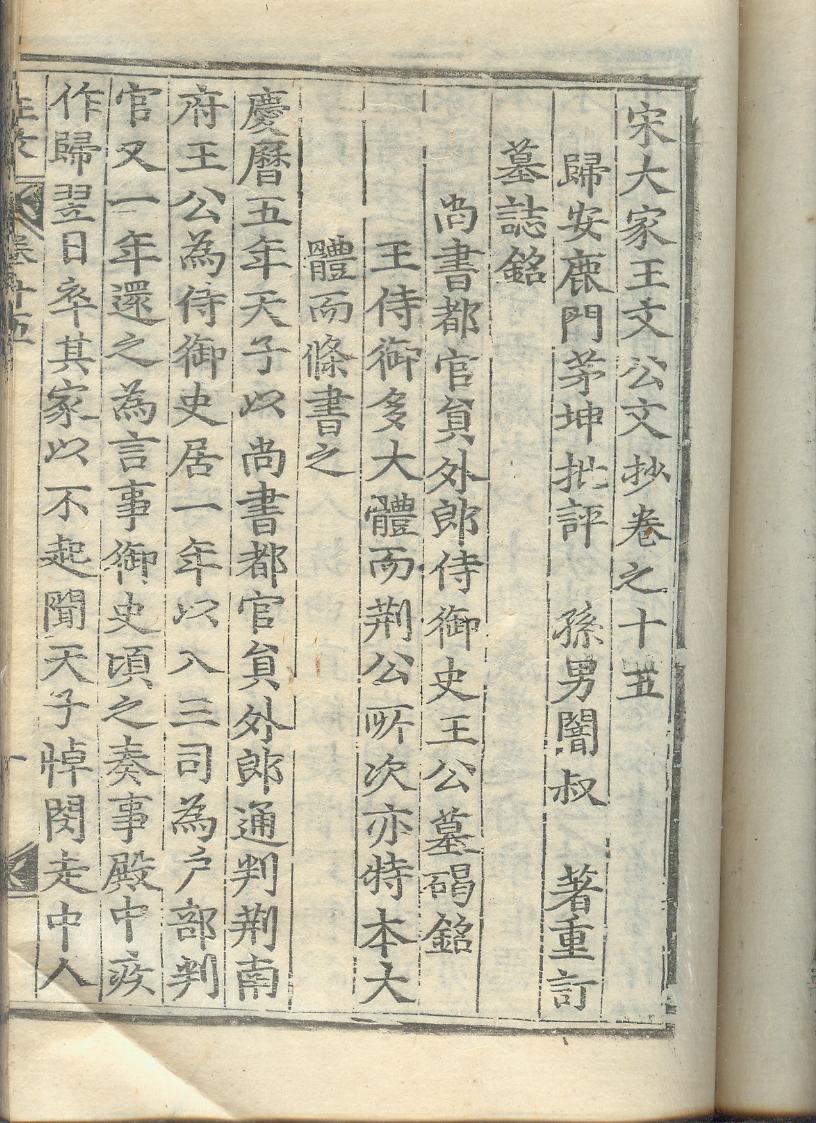 宋大家王文公文抄卷之十五
歸安鹿門茅坤批評 孫男闇叔 著重訂
墓誌銘
尚書都官員外郎侍御史王公墓碣銘
王侍御多大體而荆公所次亦特本大
體而條書之
慶曆五年天子以尚書都官員外郎通判荆南
府王公為侍御史居一年以入三司為户部判
官又一年還之為言事御史頃之奏事殿中疾
作歸翌日卒其家以不起聞天子悼閔走中人
王文 卷十五 一